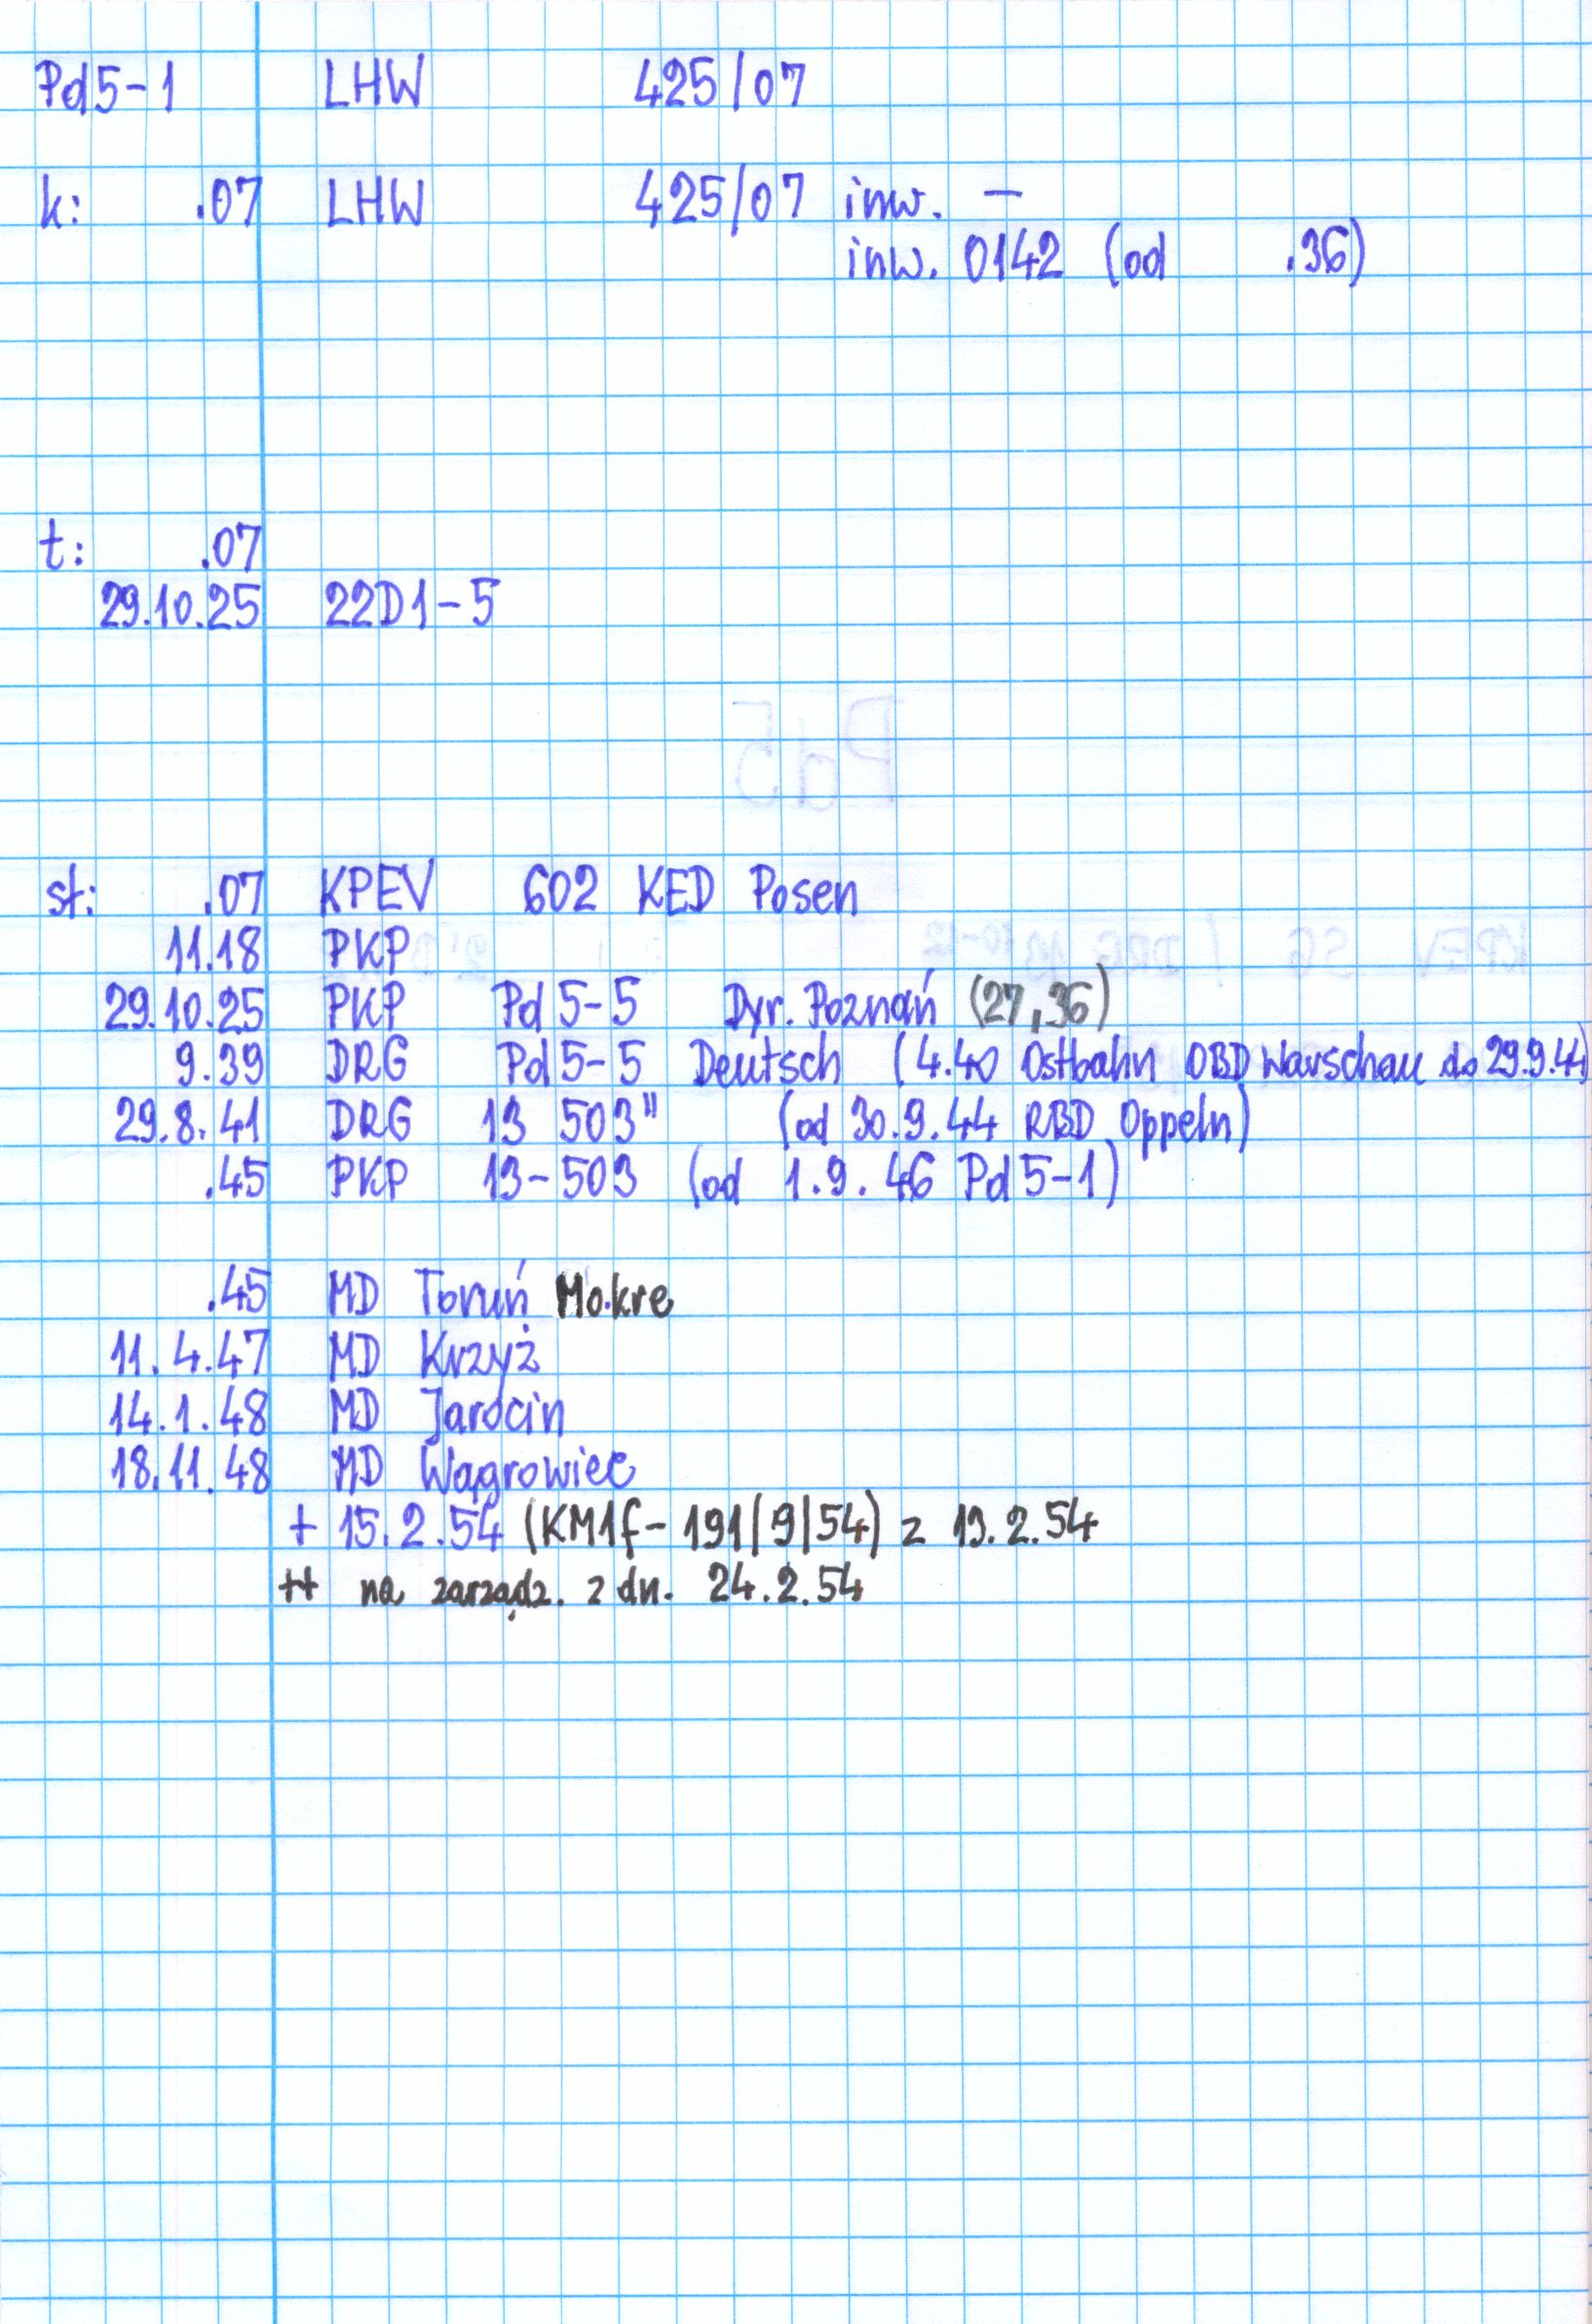 Pd5-1 LHW 425/07
k: .07 LHW 425/07 inw. —
inw. 0142 (od .36)
t: .07
29.10.25 22D1-5
st: .07 KPEV 602 KED Posen
11.18 PKP
29.10.25 PKP Pd5-5 Dyr. Poznań (27,36)
9.39 DRG Pd5-5 Deutsch (4.40 Ostbahn OBD Warschau do 29.9.44)
29.8.41 DRG 13 503" (od 30.9.44 RBD Oppeln)
.45 PKP 13-503 (od 1.9.46 Pd5-1)
.45 MD Toruń Mokre
11.4.47 MD Krzyż
14.1.48 MD Jarocin
18.11.48 MD Wągrowiec
+ 15.2.54 (KM1f-191/9/54) z 19.2.54
++ na zarządz. z dn. 24.2.54